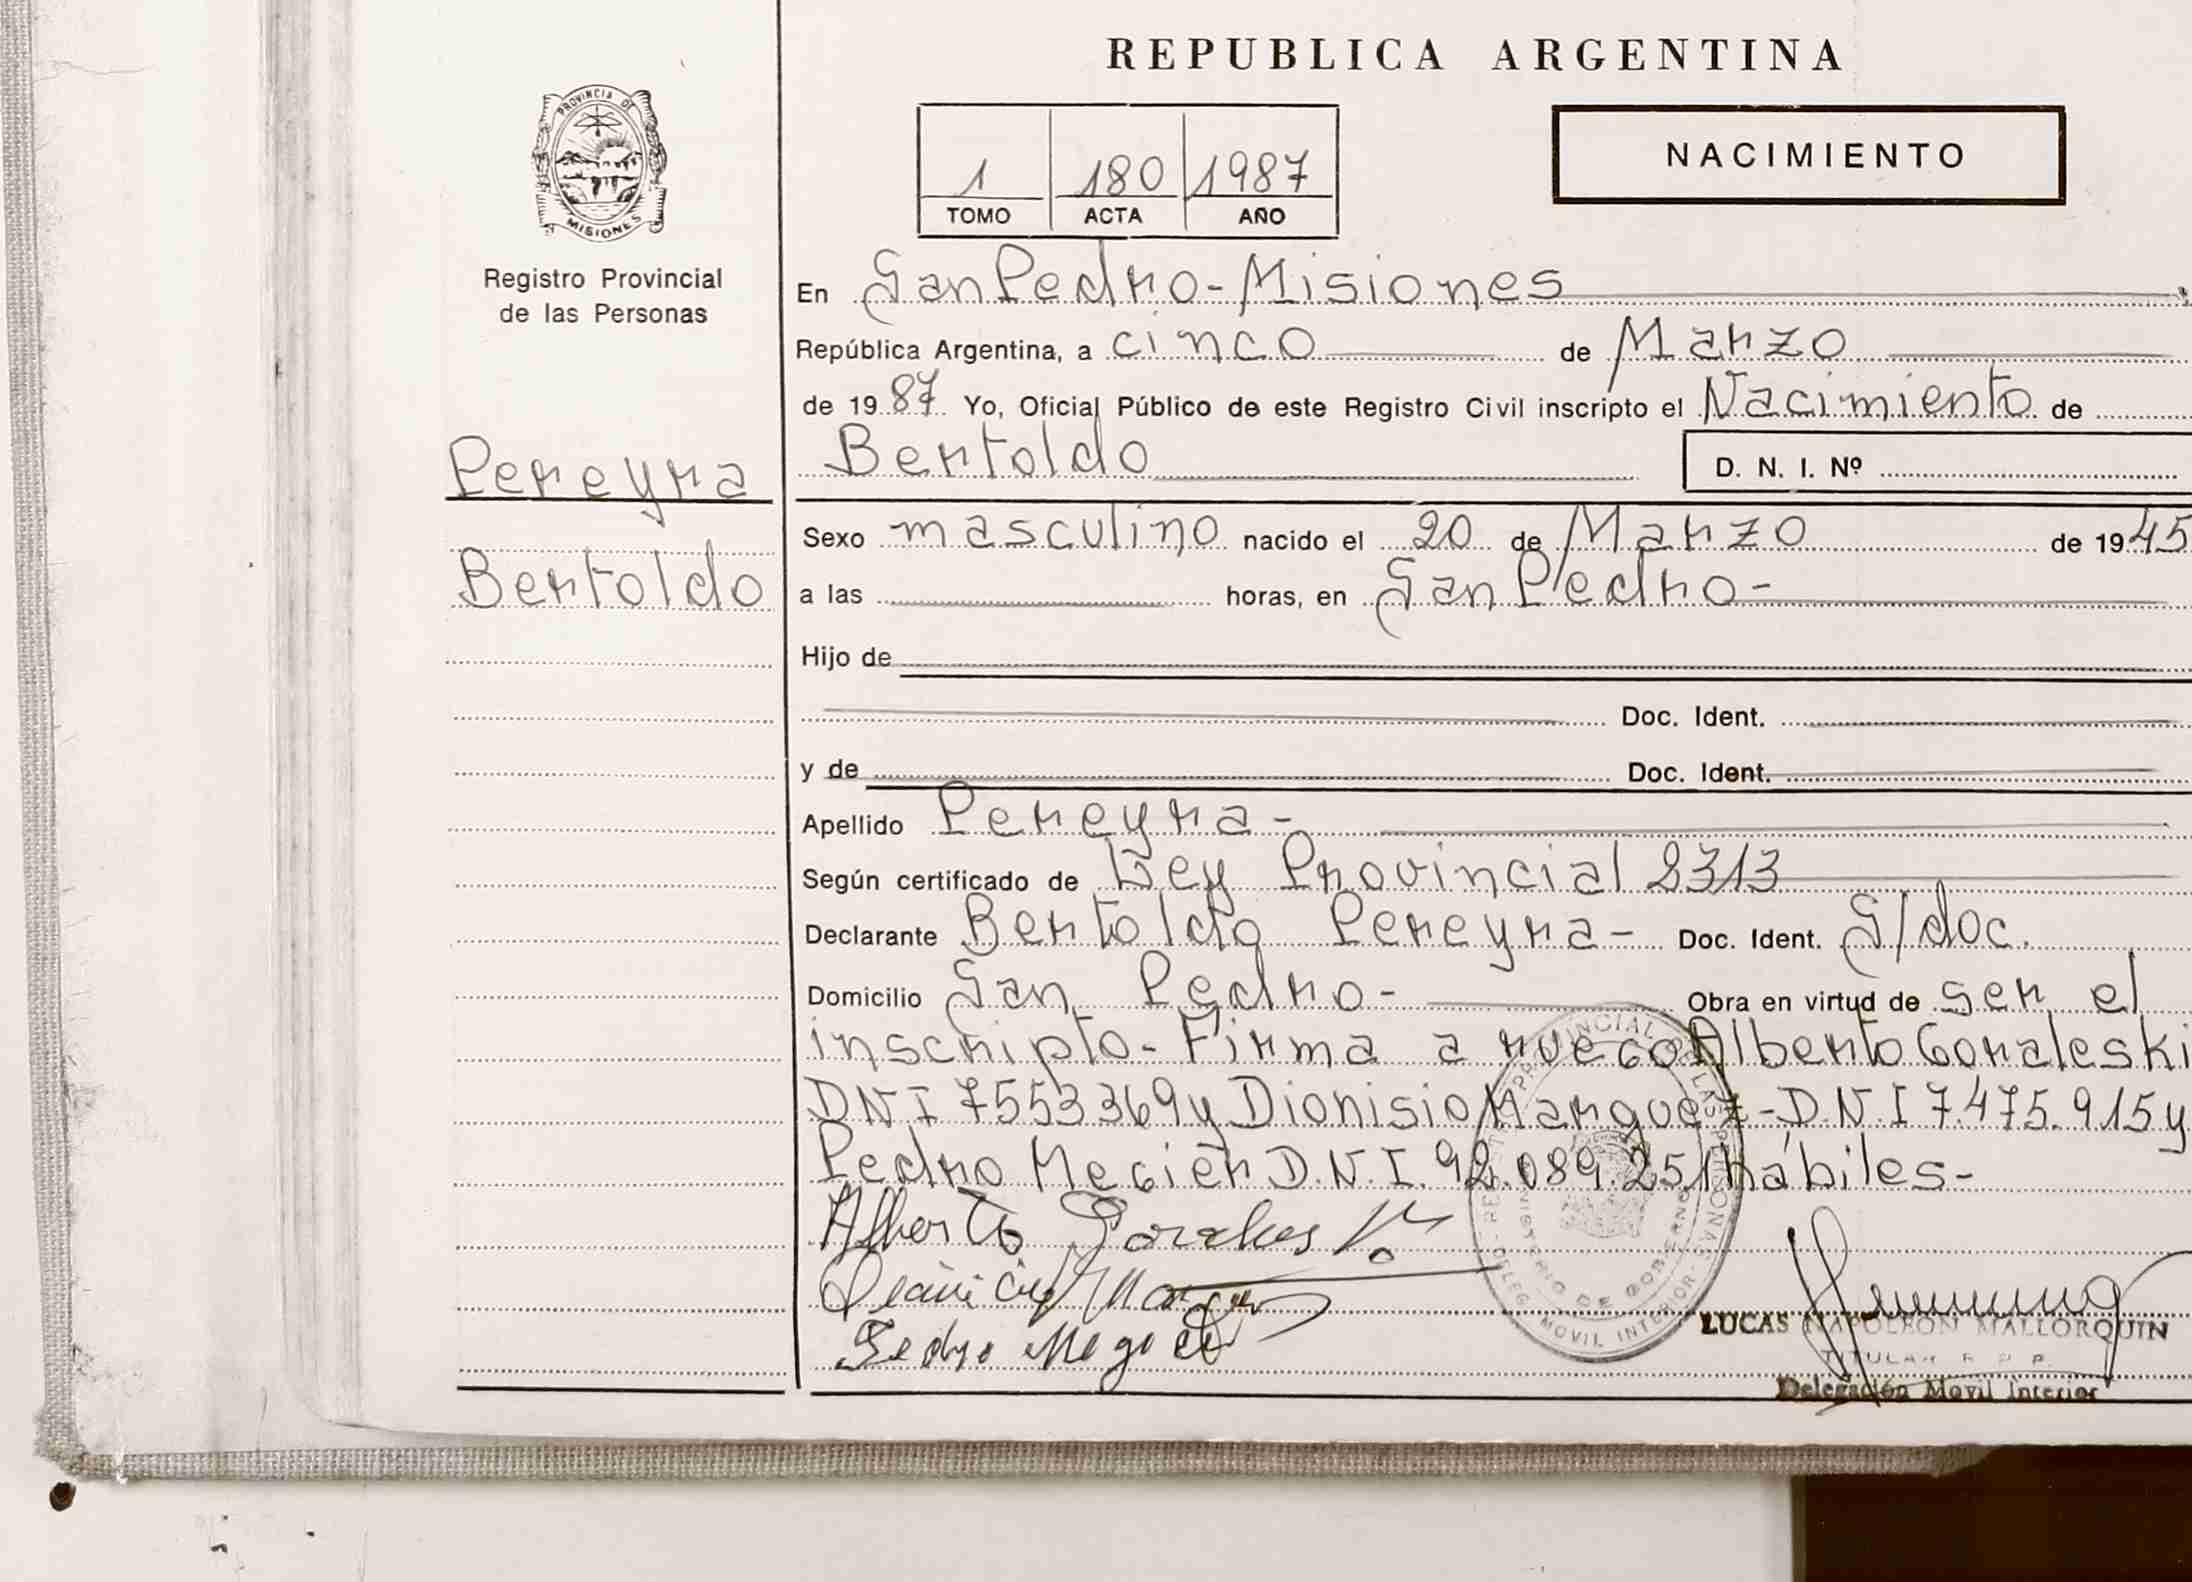 REPUBLICA ARGENTINA
PROVINCIA DE
MISIONES
Registro Provincial
de las Personas
1 180 1987
TOMO ACTA AÑO
NACIMIENTO
Pereyra
Bertoldo
En San Pedro - Misiones
República Argentina, a cinco de Marzo
de 1987 Yo, Oficial Público de este Registro Civil inscripto el Nacimiento de
Bertoldo D. N. I. Nº
Sexo masculino nacido el 20 de Marzo de 1945
a las horas, en San Pedro -
Hijo de
Doc. Ident.
y de Doc. Ident.
Apellido Pereyra -
Según certificado de Ley Provincial 2313
Declarante Bertoldo Pereyra - Doc. Ident. S/doc.
Domicilio San Pedro - Obra en virtud de ser el
inscripto - Firma a ruego Alberto Goraleski
DNI 7553369 y Dionisio Marquez - D.N.I 7.475.915 y
Pedro Megier D.N.I. 92.089.251 hábiles -
Alberto
Pedro
LUCAS NAPOLEON MALLORQUIN
TITULAR R. P. P.
Delegación Movil Interior
REGISTRO PROVINCIAL DE LAS PERSONAS - DELEG. MOVIL INTERIOR -
MINISTERIO DE GOBIERNO